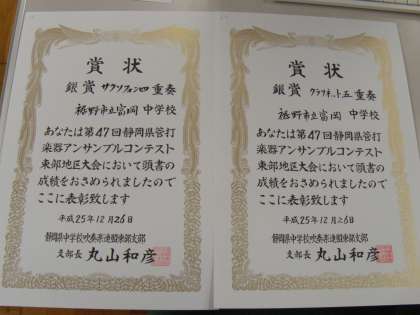 賞状
銀賞 サクソフォン四重奏
裾野市立富岡中学校
あなたは第47回静岡県管打
楽器アンサンブルコンテスト
東部地区大会において頭書の
成績をおさめられましたので
ここに表彰致します
平成25年12月26日
静岡県中学校吹奏楽連盟東部支部
支部長 丸山和彦
賞状
銀賞 クラリネット五重奏
裾野市立富岡中学校
あなたは第47回静岡県管打
楽器アンサンブルコンテスト
東部地区大会において頭書の
成績をおさめられましたので
ここに表彰致します
平成25年12月26日
静岡県中学校吹奏楽連盟東部支部
支部長 丸山和彦